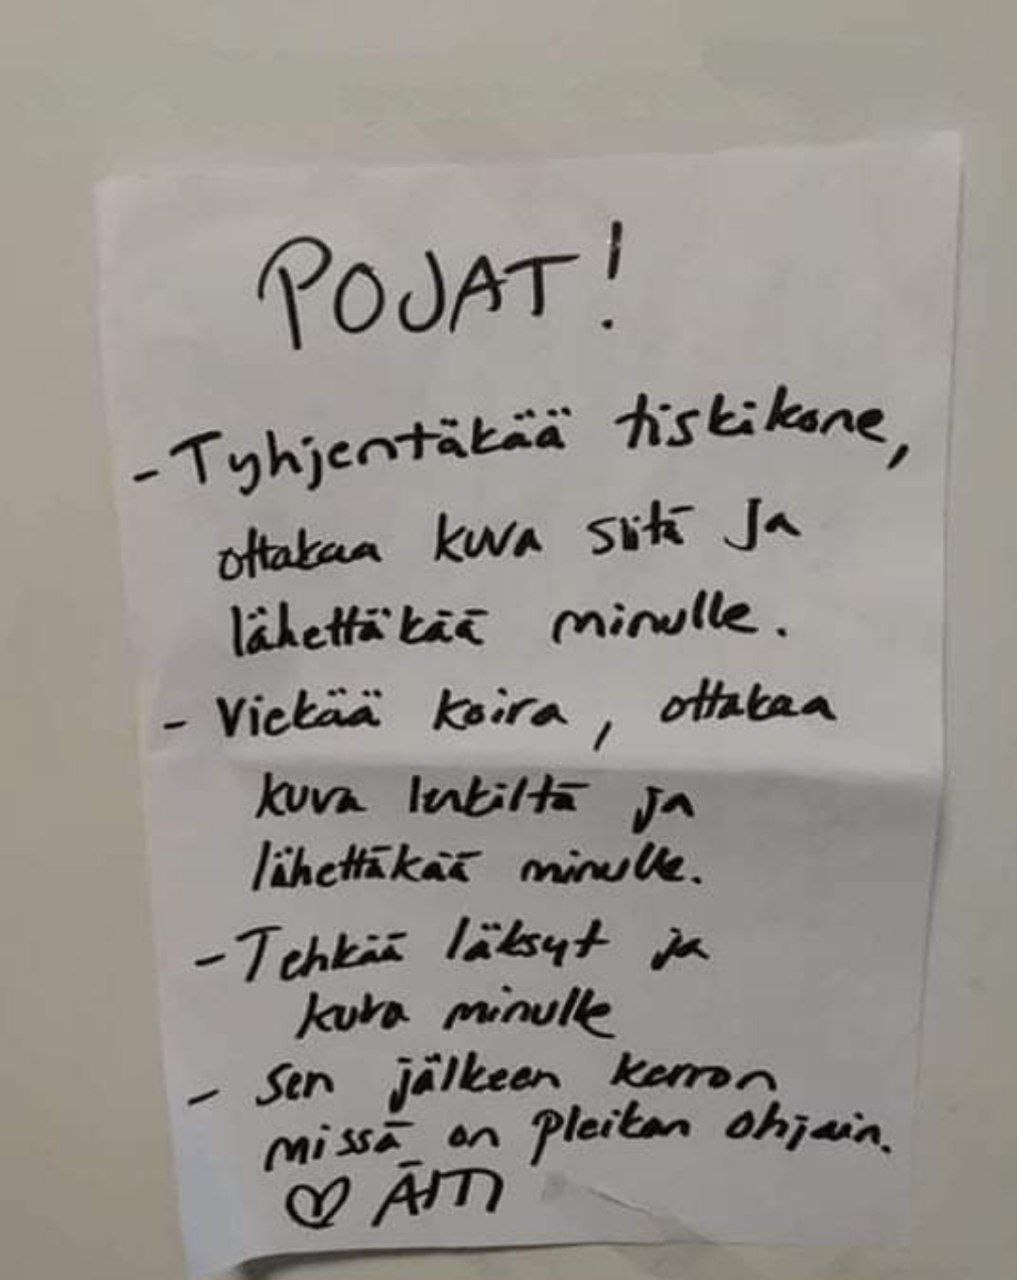 POJAT!
- Tyhjentäkää tiskikone,
ottakaa kuva siitä ja
lähettäkää minulle.
- Viekää koira, ottakaa
kuva lenkiltä ja
lähettäkää minulle.
- Tehkää läksyt ja
kuva minulle
- Sen jälkeen kerron
missä on pleikan ohjain.
♡ ÄITI